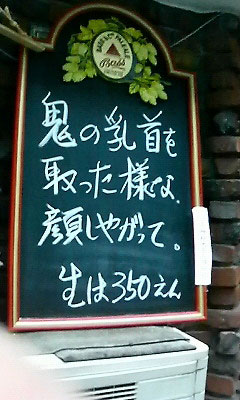 BASS & CO'S PALE ALE
Bass
鬼の乳首を
取った様な、
顔しやがって。
生は350えん